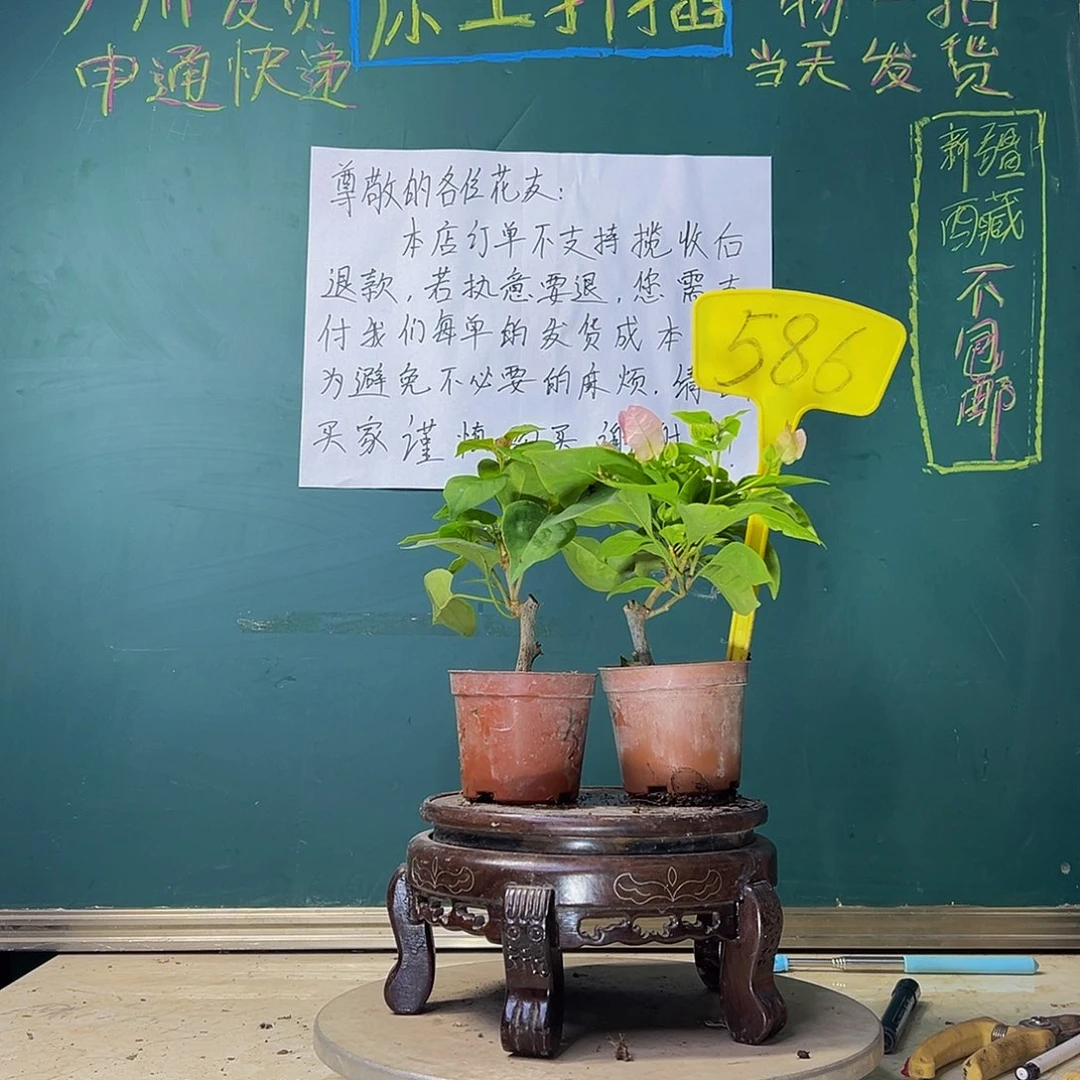 广州发货
原土扦插
一物一拍
申通快递
当天发货
尊敬的各位花友:
本店订单不支持揽收后
退款,若执意要退,您需支
付我们每单的发货成本
为避免不必要的麻烦.请
买家谨慎购买 谢谢
586
新疆
西藏
不
包
邮